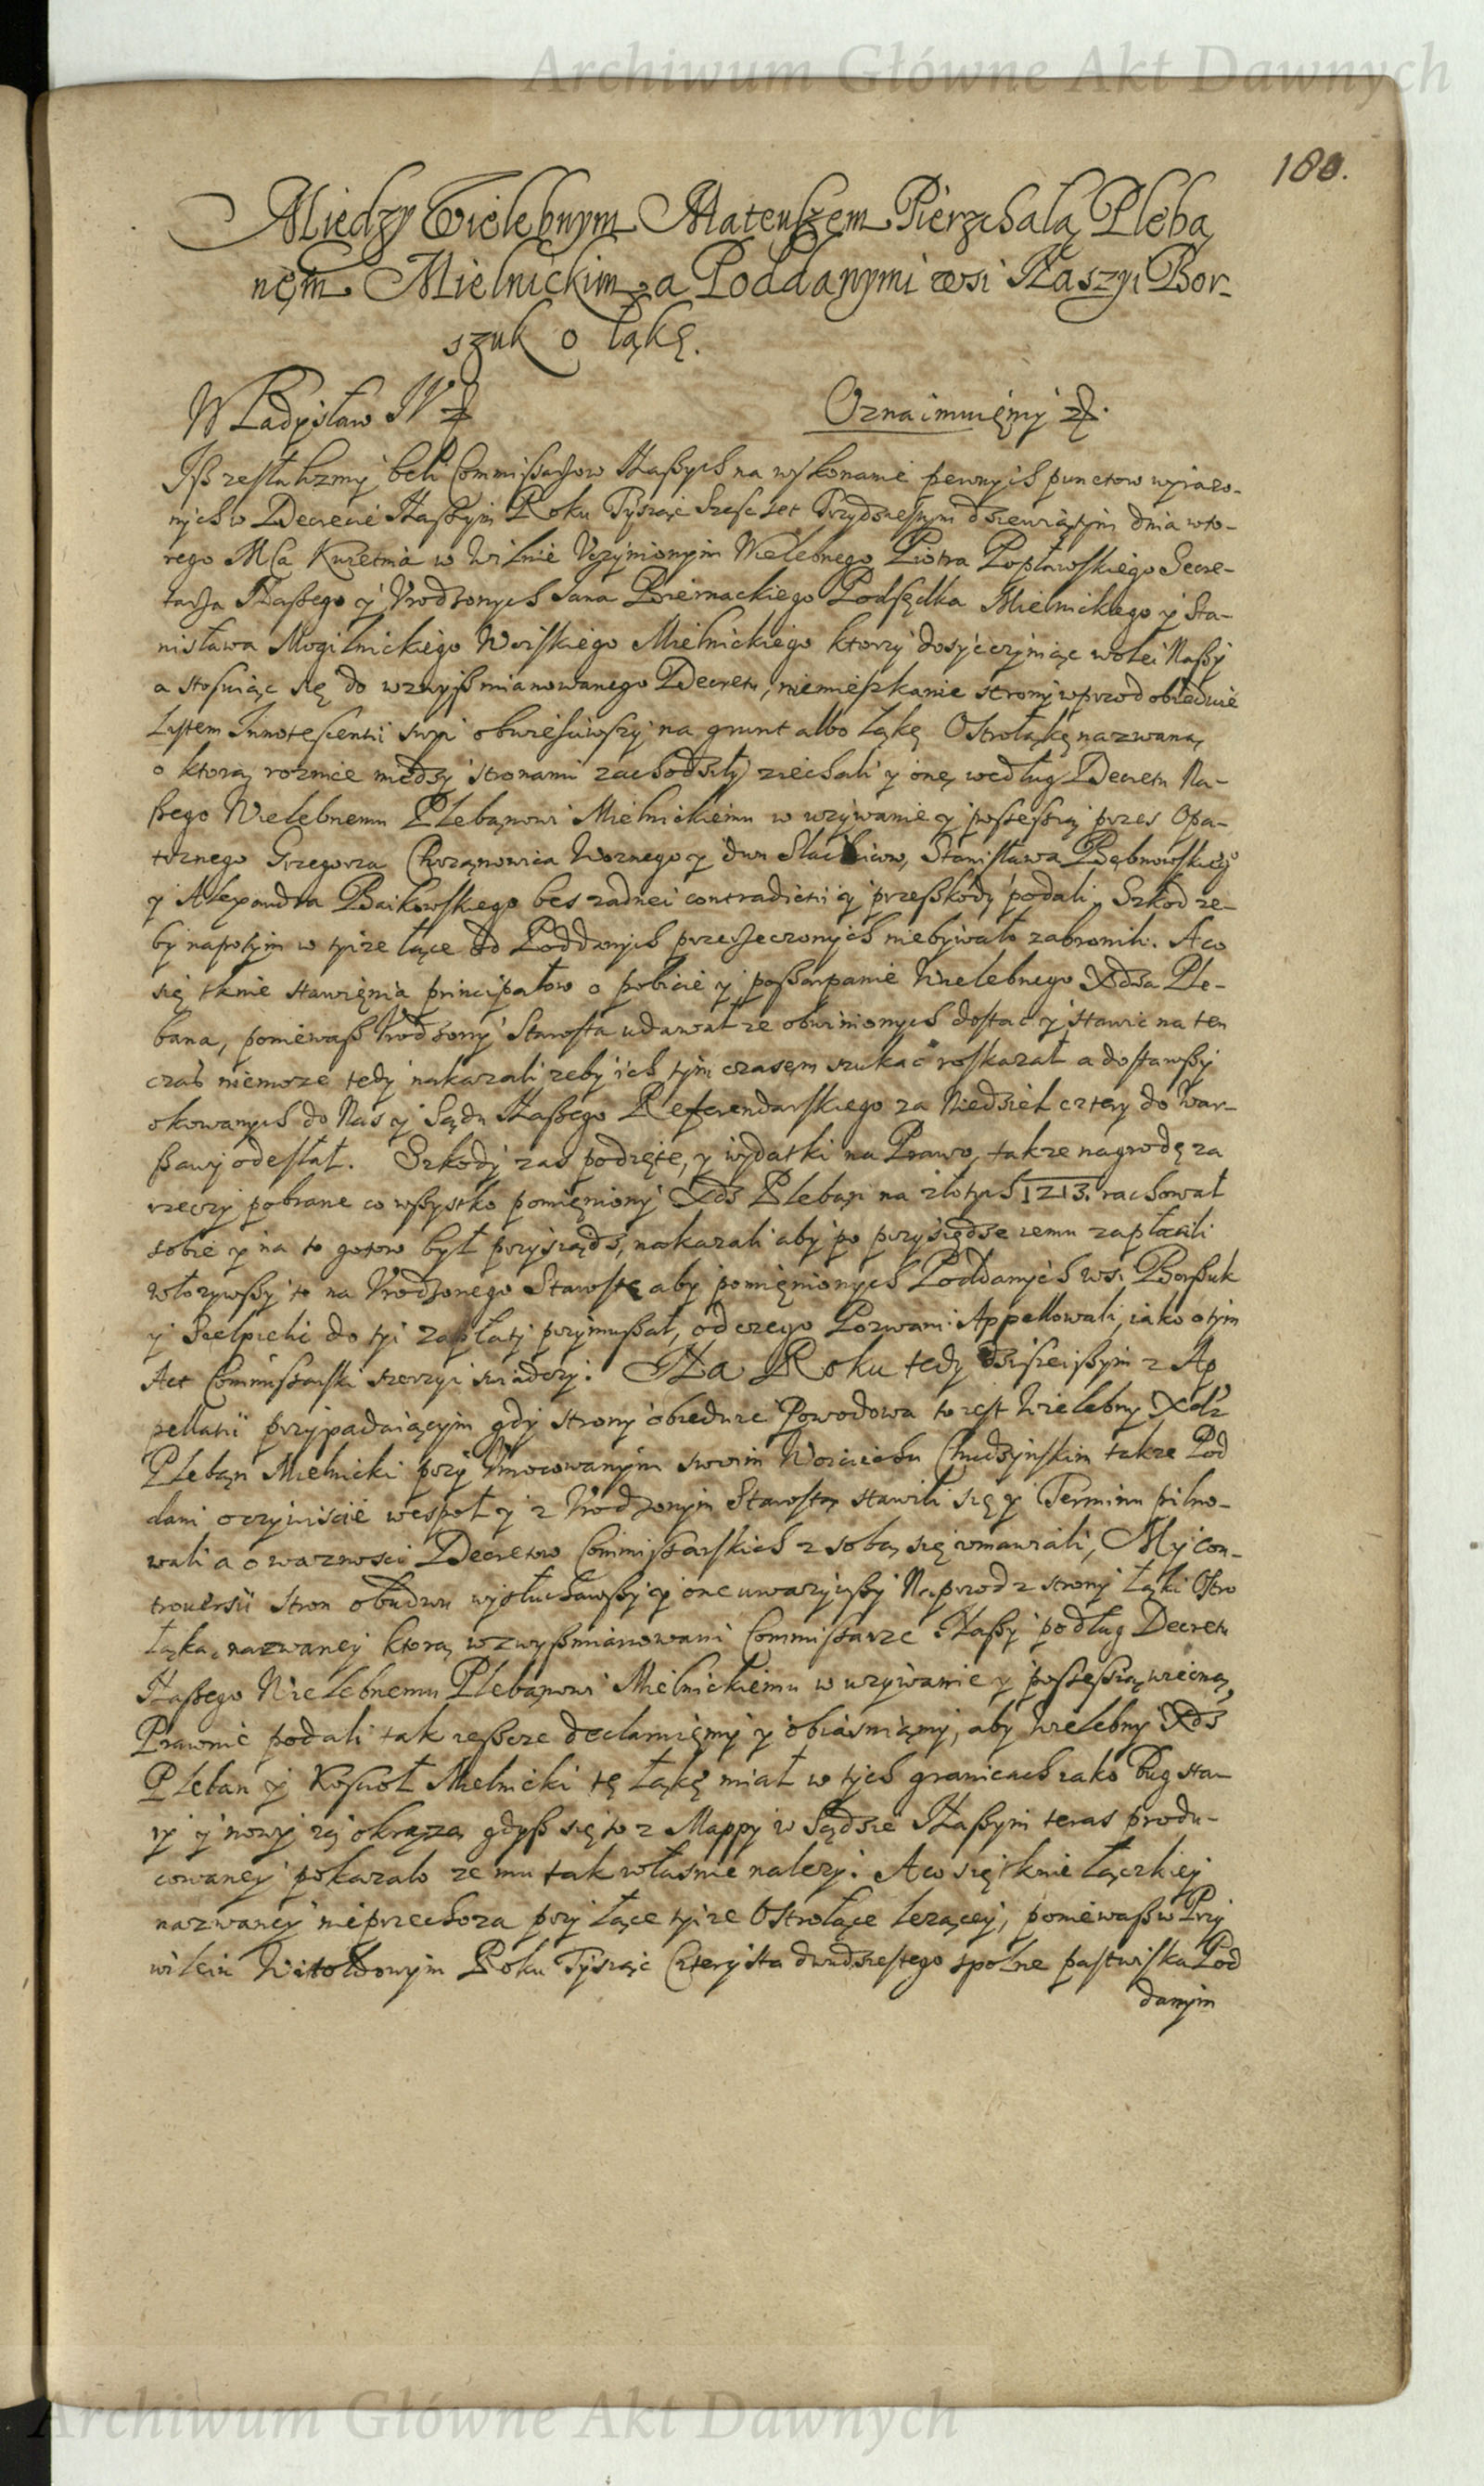 Archiwum Główne Akt Dawnych
180.
Między Wielebnym Mateuszem Pierzchałą Pleba
nęm Mielnickim a Poddanymi wsi Naszyi Bor-
szuk o łąkę.
Władysław IV
Oznaimuięmy
Iß zesłalizmy beli Commissarzow Naßych na wykonanie pewnych punctow wyrazo-
nych w Decrecie Naßym Roku Tysiąc Szesc set Trzydziestym dziewiątym dnia wto-
rego Mca Kwietnia w Wilnie Uczynionym Wielebnego Piotra Popławskiego Secre-
tarza Naßego y Urodzonych Jana Biernackiego Podsędka Mielnickego y Sta-
nisława Mogilnickiego Woiskiego Mielnickiego ktorzy dosyć czyniąc wolei Naßy
a stosuiąc się do wzwyß mianowanego Decretu, niemieszkanie strony wprzod obiedwie
Lystem Innotescentii swyi obwiesciwszy na grunt albo Łąkę Ostrołąkę nazwaną
o ktorą roznice między stronami zachodziły ziechali y onę według Decretu Na-
ßego Wielebnemu Plebanowi Mielnickiemu w uzywanie y possessią przes Opa-
trznego Grzegorza Chrzanowica Woznego y dwu Slachicow, Stanisława Dębnowskiego
y Alexandra Baikowskiego bes zadnei contradictii y przeßkody podali, Szkod ze-
by napotym w tyize łące od Poddanych przerzeczonych niebywało zabronili. A co
się tknie stawięnia principałow o pobicie y poßarpanie Wielebnego Xdza Ple-
bana, poniewaß Urodzony Starosta udawał ze obwinionych dostac y stawic na ten
czas niemoze tedy nakazali zeby ich tym czasęm szukac roskazał a dostawßy
okowanych do Nas y Sądu Naßego Referendarskiego za Niedziel cztery do War-
ßawy odesłał. Szkody zas podięte, y wydatki na Prawo, takze nagrodę za
rzeczy pobrane co wßystko pomięniony Xdz Pleban na złotych 1213. rachował
sobie y na to gotow był przysiądz, nakazali aby po przysiędze iemu zapłacili
włozywßy to na Urodzonego Starostę aby pomięnionych Poddanych wsi Borßuk
y Sielpiech do tyi zapłaty przymußał, od czego Pozwani Appellowali, iako o tym
Act Commissarski szerzyi swiadczy. Na Roku tedy dzisieißym z Ap
pellatii przypadaiącym gdy strony obiedwie Powodowa to iest Wielebny Xdz
Pleban Mielnicki przy Umocowanym swoim Woiciechu Chudzynskim takze Pod
dani oczywiscie wespoł y z Urodzonym Starostą stawili się y Terminu pilno-
wali a o waznosci Decretow Commissarskich z sobą się rozmawiali, My con-
trouersii stron obudwu wysłuchawßy y one uwazywßy Naprzod z strony Łąki Ostro
łąka nazwaney ktorą wzwyßmianowani Commissarze Naßy podług Decretu
Naßego Wielebnemu Plebanowi Mielnickiemu w uzywanie y possessią wieczną
Prawnie podali tak ießcze declaruięmy y obiasniamy, aby Wielebny Xdz
Pleban y Koscioł Mielnicki tę Łąkę miał w tych granicach iako Bug sta-
ry y nowy ią okrąza, gdyß się to z Mappy w Sądzie Naßym teras produ-
cowaney pokazało ze mu tak własnie nalezy. A co się tknie Łączkiey
nazwaney nieprzechoza przy Łące tyize Ostrołące lezącey, poniewaß w Przy
wileiu Witołdowym Roku Tysiąc Czterysta dwudziestego spolne pastwiska Pod
danym
Archiwum Główne Akt Dawnych